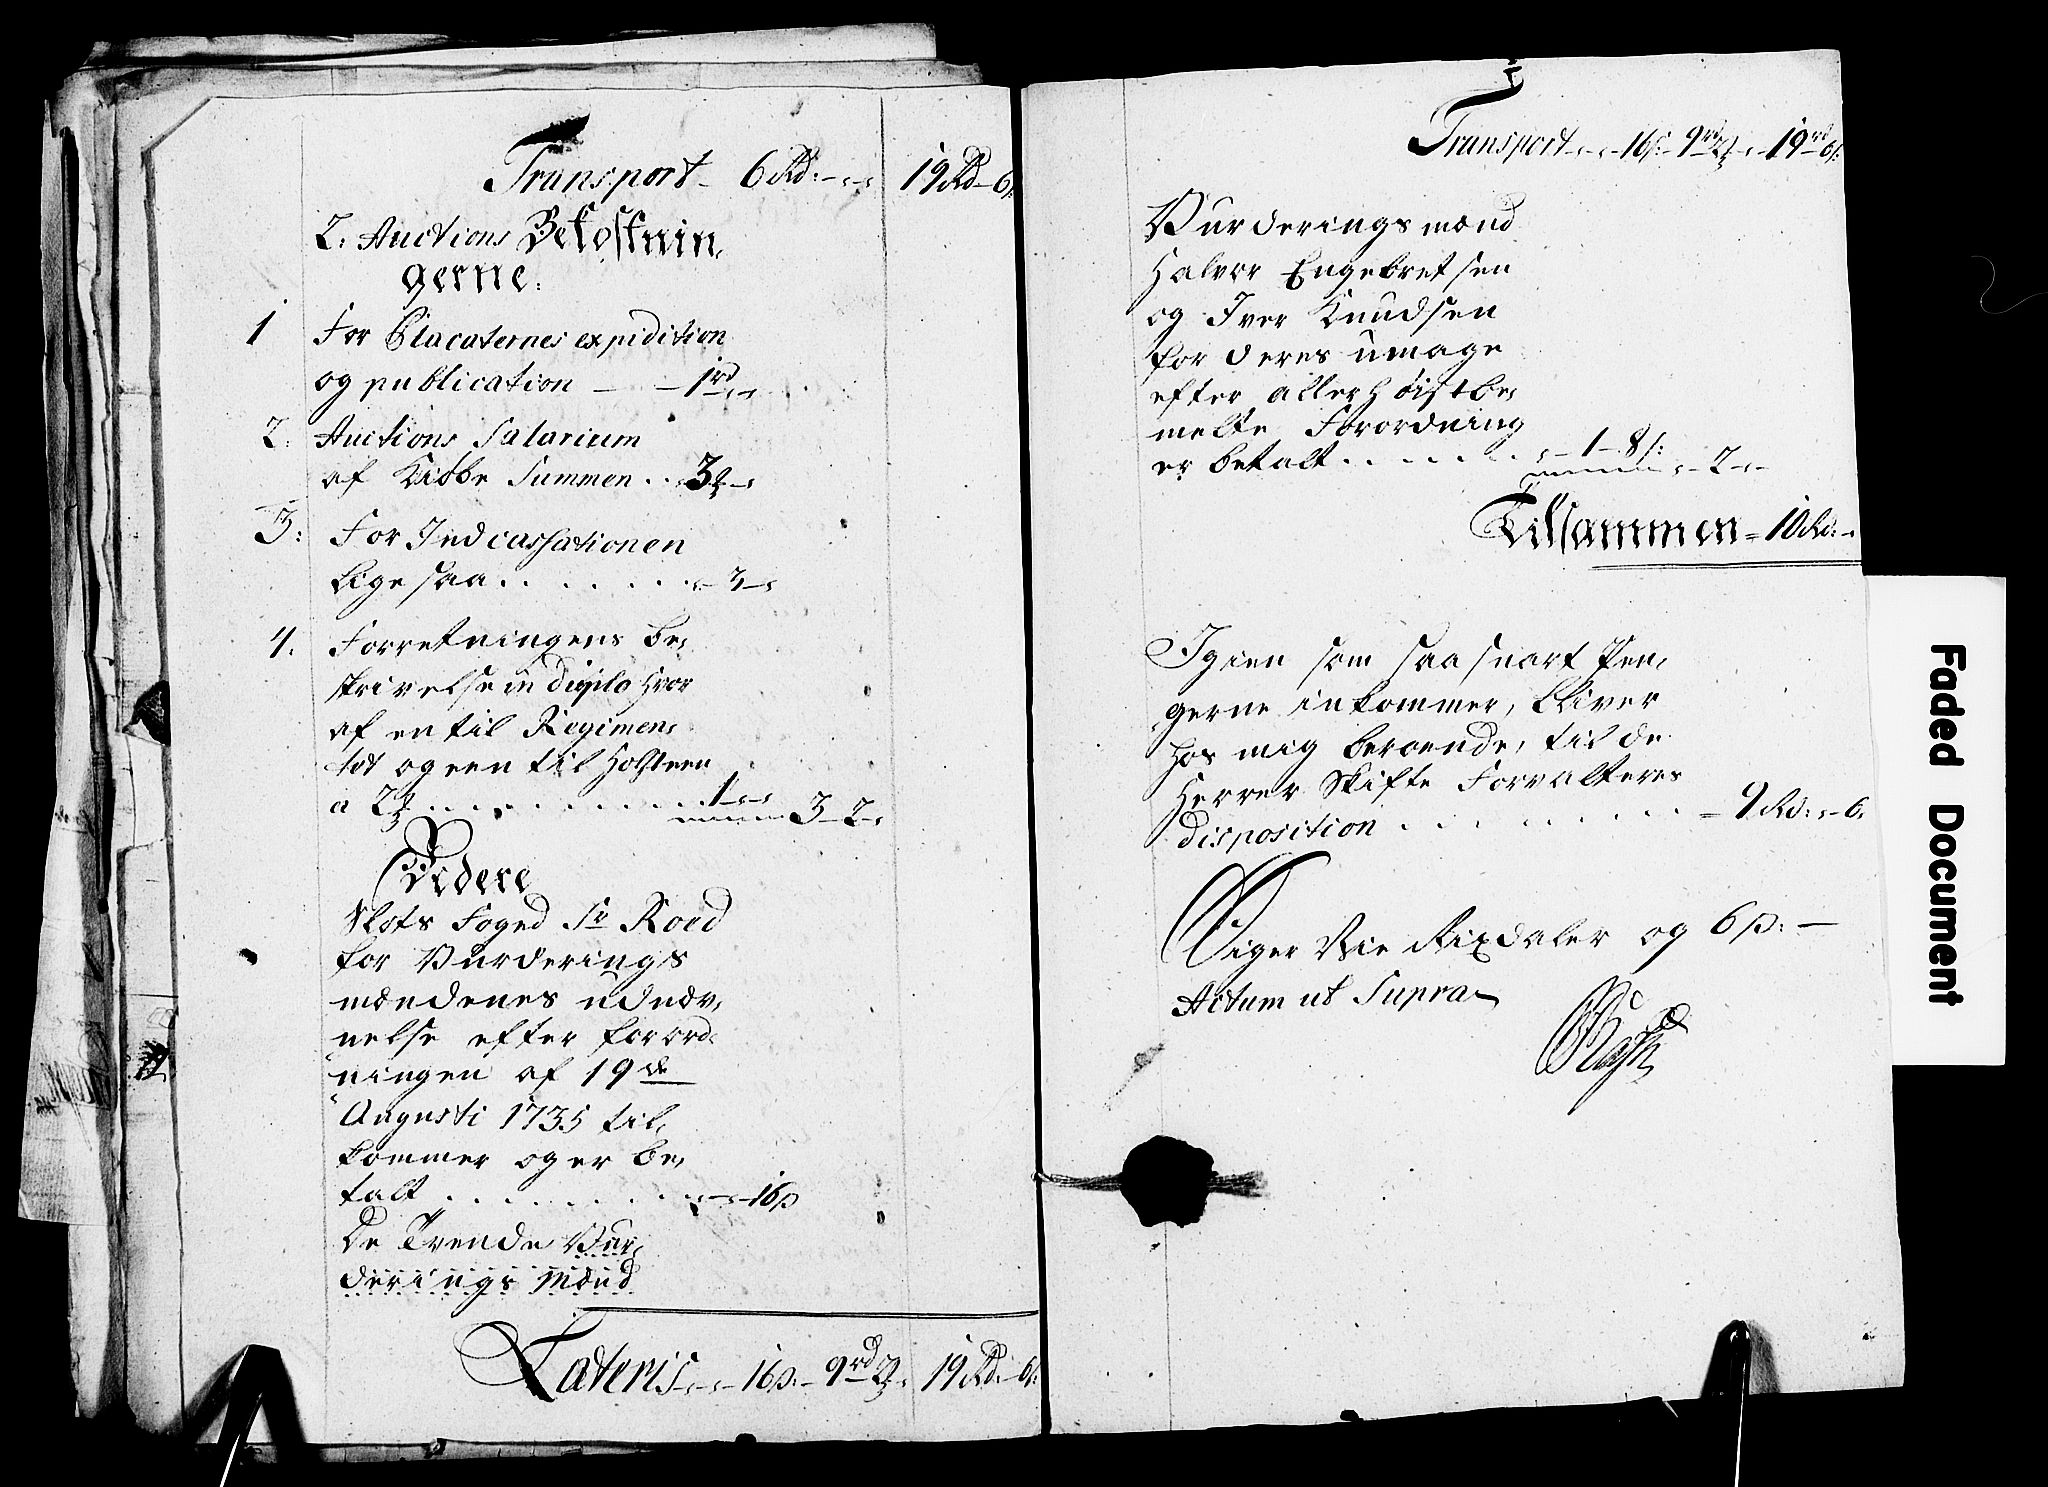 Transport 6 Rd: 19 Rd 6 s:
2. Auctions Bekostnin,
gerne:
1 For Placaternes expidition
og publication 1 rd
2. Auctions Salarium
af Kiøbe Summen 3
3: For Indcassationen
lige saa 3
4. Forretningens be,
skrivelse in duplo hvor
af en til Regimen,
tet og een til Holsteen
a 2 1 3 2
Videre
Slots Foged Sr Roed
for Vurderings
mændenes udnæv,
nelse efter forord,
ningen af 19de
Augusti 1735 til,
kommer og er be,
talt 16 s
De Trende Vur,
derings Mænd
Lateris 16 s: 9 rd 2 19 Rd: 6 s:
Transport 16 s: 9 rd 2 19 rd 6 s:
Vurderings mænd
Halvor Engebretsen
og Iver Knudsen
for deres umage
efter allerhøistbe,
melte Forordning
er betalt 1 8 s: 2
Tilsammen 10 Rd:
Igien som saa snart Pen,
gerne inkommer, bliver
hos mig beroende, til de
Herrer Skifte Forvalteres
disposition 9 Rd: 6
Siger Nie Rixdaler og 6 s:
Actum ut Supra
Faded Document